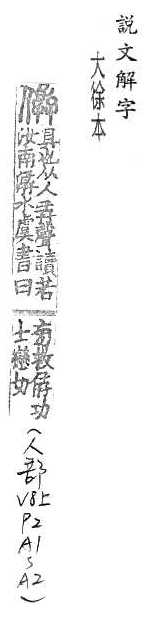 說文解字
大徐本
僝
具也从人孨聲讀若
汝南僝水虞書曰
旁救僝功
士戀切
(人部
V8上
P2
A1
S
A2)